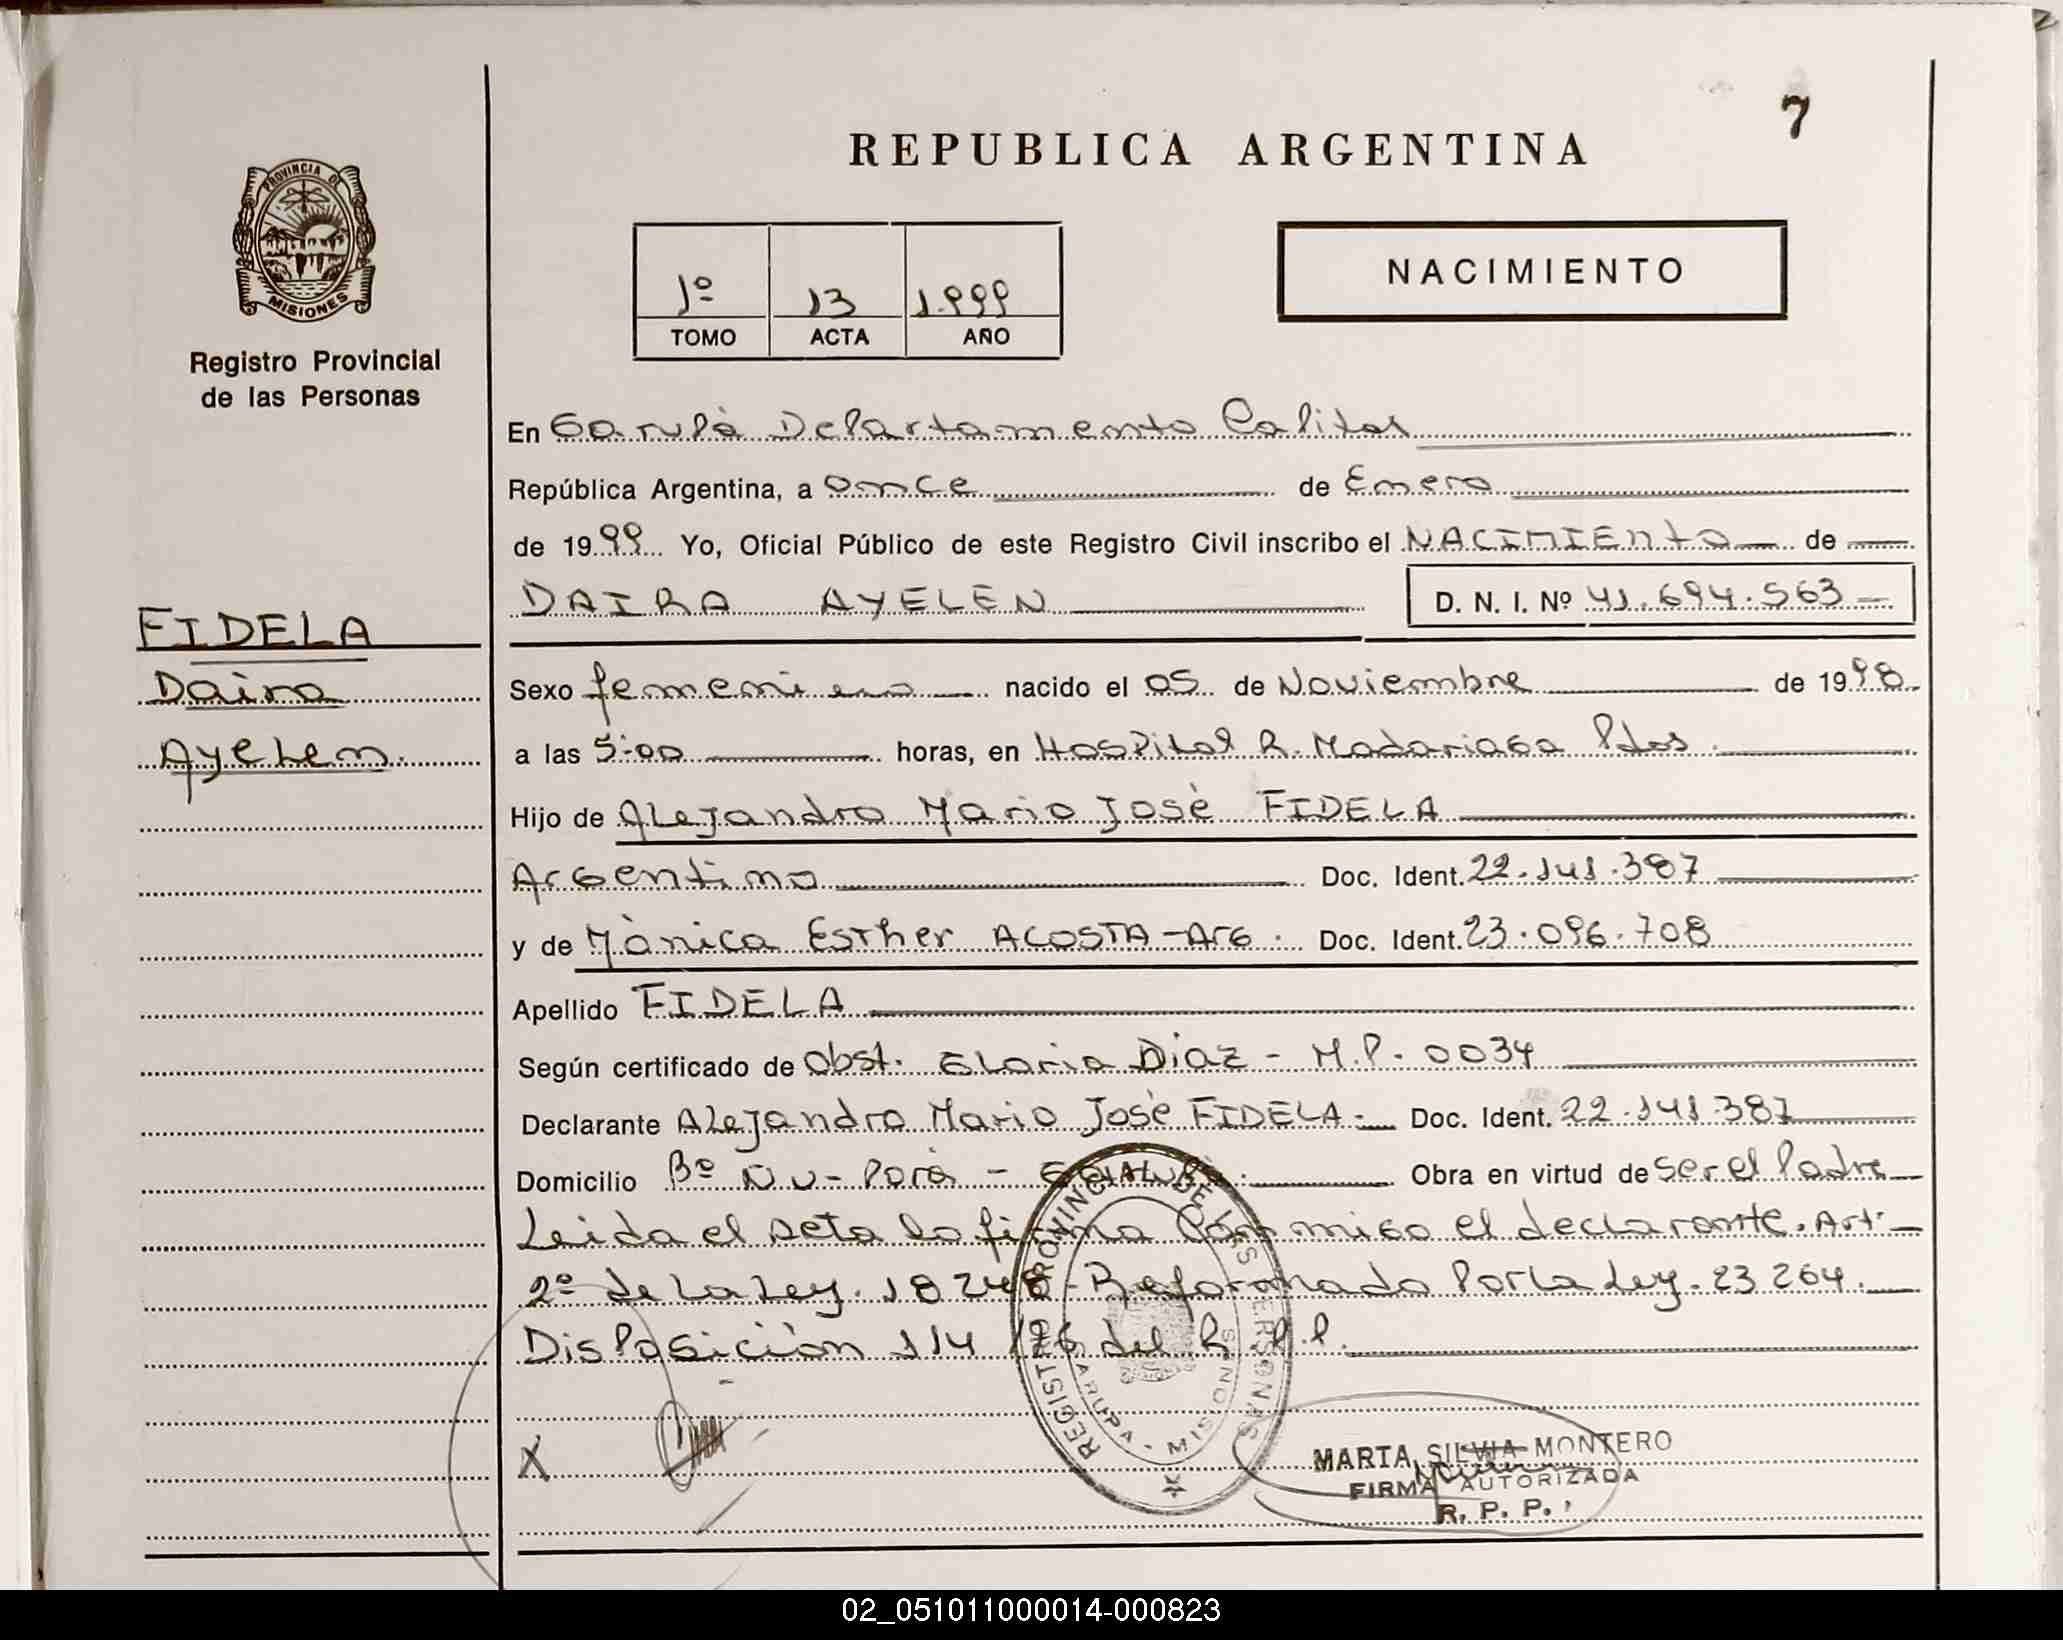 7
REPUBLICA ARGENTINA
PROVINCIA DE
MISIONES
Registro Provincial
de las Personas
1º 13 1.999
TOMO ACTA AÑO
NACIMIENTO
En Garupá Departamento Capital
República Argentina, a once de Enero
de 1999 Yo, Oficial Público de este Registro Civil inscribo el NACIMIENTO de
DAIRA AYELEN D. N. I. Nº 41.694.563
FIDELA
Daira
Ayelen.
Sexo femenino nacido el 05 de Noviembre de 1998
a las 5:00 horas, en Hospital R. Madariaga Pdas.
Hijo de Alejandro Mario José FIDELA
Argentino Doc. Ident. 22.141.387
y de Mònica Esther ACOSTA - Arg. Doc. Ident. 23.096.708
Apellido FIDELA
Según certificado de Obst. Gloria Diaz - M.P. 0034
Declarante Alejandro Mario José FIDELA.- Doc. Ident. 22.141.387
Domicilio Bº Ñu-Porá - Garupá. Obra en virtud de ser el Padre
Leida el acta la firma conmigo el declarante. Art.
2º de la Ley. 18248 - Reformado Por la Ley. 23264.
Disposición 114/76 del R.P.P.
REGISTRO PROVINCIAL DE LAS PERSONAS
GARUPA - MISIONES
X
MARTA SILVIA MONTERO
FIRMA AUTORIZADA
R. P. P.
02_051011000014-000823